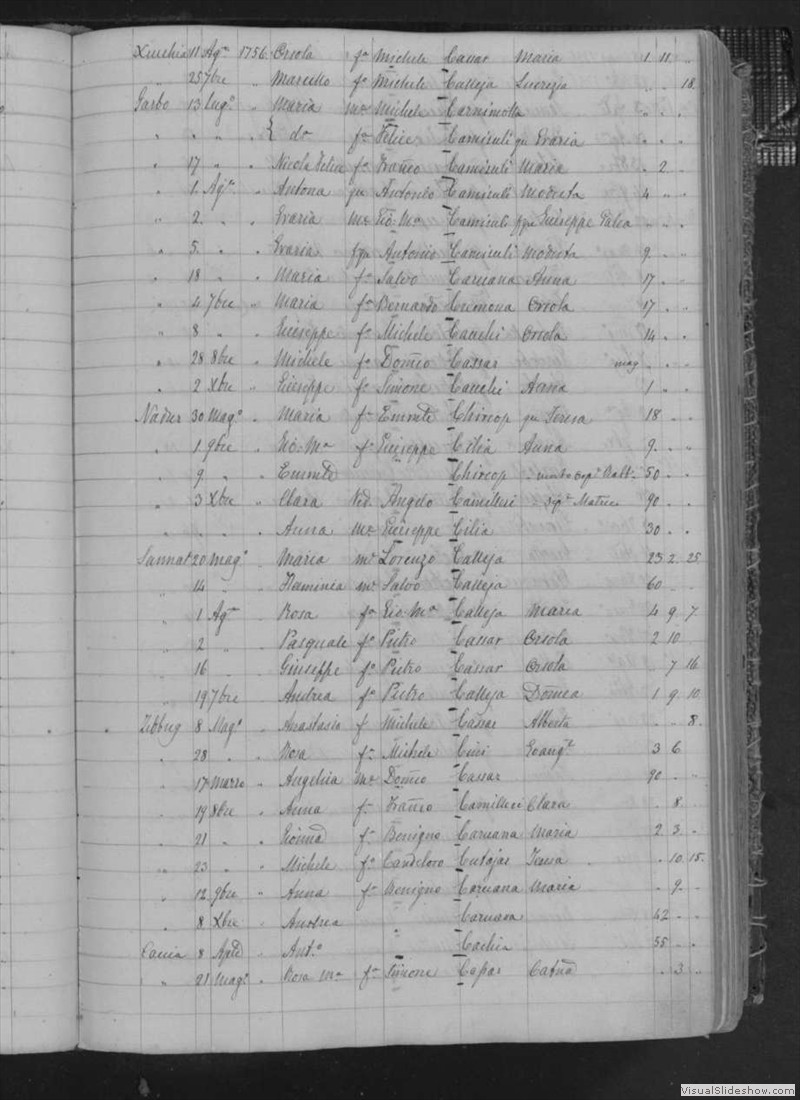 Xeuchia 11 Agto 1756 Orsola fa Michele Cassar Maria 1 11 "
" 25 7bre " Marcello fo Michele Calleja Lucrezia . . 18
Garbo 13 Lugo " Maria me Michele
" " " " do fa Felice Camenzuli qu Evaria
" 17 " " Nicola Felice fo Franco Maria . 2 .
" 1 Agto " Antona qu Antonio Modesta 4 . .
" 2 " " Evaria me Gio Ma Giuseppe
" 5 " " Evaria Antonio Modesta 9 . .
" 18 " " Maria fa Salvo Caruana Anna 17 . .
" 4 7bre " Maria fa Bernardo Cremona Orsola 17 . .
" 8 " " Giuseppe fo Michele Cauchi Orsola 14 . .
" 28 8bre " Michele fo Domco Cassar mag . .
" 2 Xbre " Giuseppe fo Simone Cauchi Anna 1 . .
Nadur 30 Mago " Maria fa Chircop qu Teresa 18 . .
" 1 9bre " Gio Ma fo Giuseppe Cilia Anna 9 . .
" 9 " " Chircop 50 . .
" 3 Xbre " Clara Ved. Angelo Camilleri Matrice 90 . .
" " " " Anna me Giuseppe Cilia 30 . .
Sannat 20 Mago " Maria me Lorenzo Calleja 23 2 25
" 14 " " Flaminia me Salvo Calleja 60 . .
" 1 Agto " Rosa fa Gio Ma Calleja Maria 4 9 7
" 2 " " Pasquale fo Pietro Cassar Orsola 2 10
" 16 " " Giuseppe fo Pietro Cassar Orsola 7 16
" 19 7bre " Andrea fo Pietro Calleja Domca 1 9 10
Zebbug 8 Mago " Anastasia f Michele Cassar Alberta . . 8
" 28 " " Rosa fa Michele Cini Evangta 3 6
" 17 Marzo " Angelica me Domco Cassar 90 . .
" 19 8bre " Anna fa Franco Camilleri Clara . 8 .
" 21 " " fa Benigno Caruana Maria 2 3 .
" 23 " " Michele fo Candeloro Cutajar . 10 15
" 12 9bre " Anna fa Benigno Caruana Maria . 9 .
" 8 Xbre " Andrea " Caruana 42 . .
Caccia 8 Aple " Anto " Cachia 55 . .
" 21 Mago " Rosa Ma fa Simone . 3 .
VisualSlideshow.com